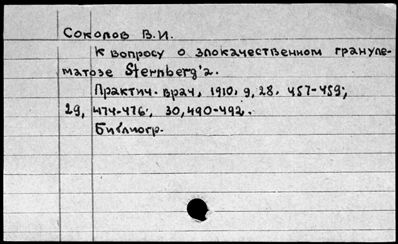 Соколов В.И.
К вопросу о злокачественном грануле-
матозе Sternberg'а.
Практич. врач, 1910, 9, 28, 457-459;
29, 474-476; 30, 490-492.
Библиогр.